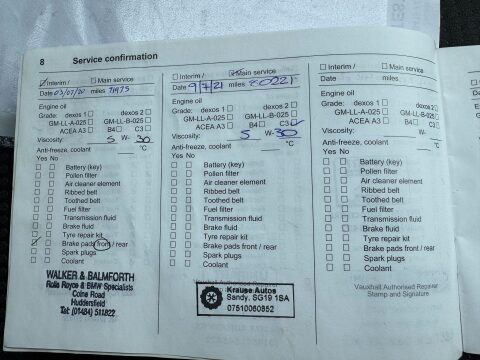 8 Service confirmation
Interim / Main service
Date 03/07/20 miles 71975
Engine oil
Grade: dexos 1 dexos 2
GM-LL-A-025 GM-LL-B-025
ACEA A3 B4 C3
Viscosity: 5 W- 30
Anti-freeze, coolant °C
Yes No
Battery (key)
Pollen filter
Air cleaner element
Ribbed belt
Toothed belt
Fuel filter
Transmission fluid
Brake fluid
Tyre repair kit
Brake pads front / rear
Spark plugs
Coolant
WALKER & BALMFORTH
Rolls Royce & BMW Specialists
Colne Road
Huddersfield
Tel: (01484) 511822
Interim / Main service
Date 9/7/21 miles 80221
Engine oil
Grade: dexos 1 dexos 2
GM-LL-A-025 GM-LL-B-025
ACEA A3 B4 C3
Viscosity: 5 W- 30
Anti-freeze, coolant °C
Yes No
Battery (key)
Pollen filter
Air cleaner element
Ribbed belt
Toothed belt
Fuel filter
Transmission fluid
Brake fluid
Tyre repair kit
Brake pads front / rear
Spark plugs
Coolant
Krause Autos
Sandy, SG19 1SA
07510060852
Interim / Main service
Date miles
Engine oil
Grade: dexos 1 dexos 2
GM-LL-A-025 GM-LL-B-025
ACEA A3 B4 C3
Viscosity: W-
Anti-freeze, coolant °C
Yes No
Battery (key)
Pollen filter
Air cleaner element
Ribbed belt
Toothed belt
Fuel filter
Transmission fluid
Brake fluid
Tyre repair kit
Brake pads front / rear
Spark plugs
Coolant
Vauxhall Authorised Repairer
Stamp and Signature